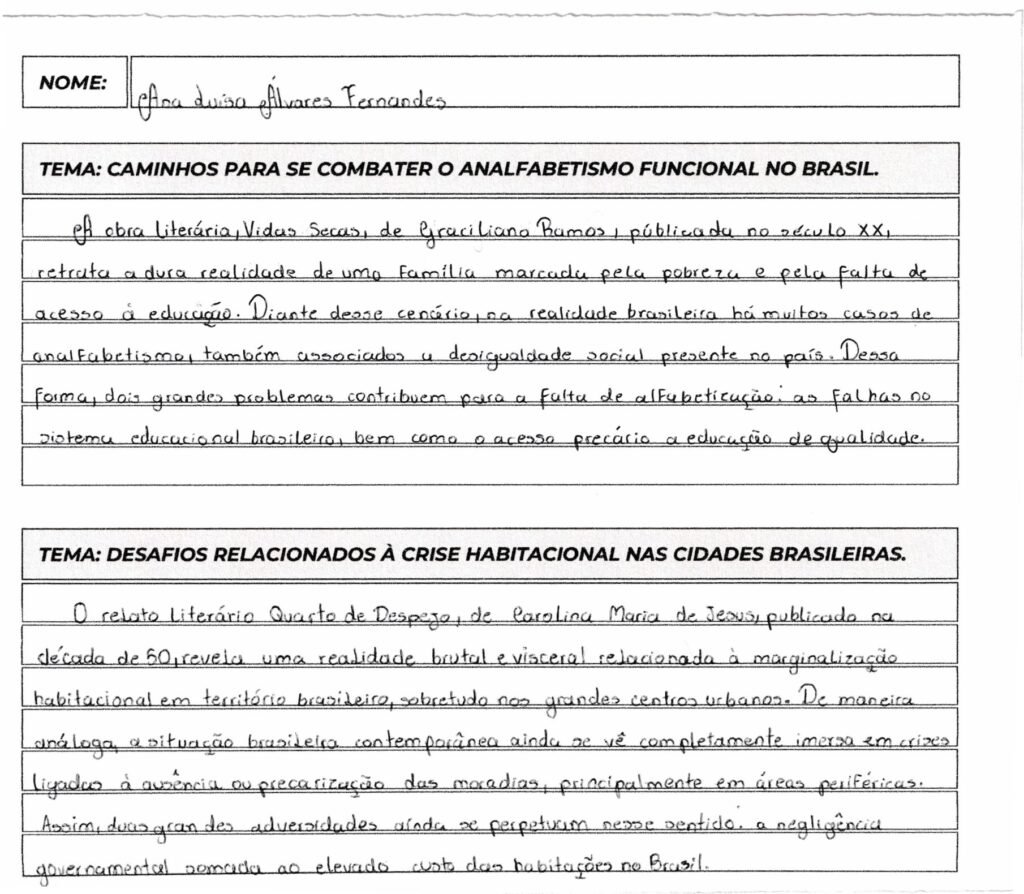 NOME:
Ana Luisa Álvares Fernandes
TEMA: CAMINHOS PARA SE COMBATER O ANALFABETISMO FUNCIONAL NO BRASIL.
A obra literária, Vidas Secas, de Graciliano Ramos, públicada no século XX,
retrata a dura realidade de uma família marcada pela pobreza e pela falta de
acesso à educação. Diante desse cenário, na realidade brasileira há muitos casos de
analfabetismo, também associados a desigualdade social presente no país. Dessa
forma, dois grandes problemas contribuem para a falta de alfabetização: as falhas no
sistema educacional brasileiro, bem como o acesso precário a educação de qualidade.
TEMA: DESAFIOS RELACIONADOS À CRISE HABITACIONAL NAS CIDADES BRASILEIRAS.
O relato literário Quarto de Despejo, de Carolina Maria de Jesus, publicado na
década de 50, revela uma realidade brutal e visceral relacionada à marginalização
habitacional em território brasileiro, sobretudo nos grandes centros urbanos. De maneira
análoga, a situação brasileira contemporânea ainda se vê completamente imersa em crises
ligadas à ausência ou precarização das moradias, principalmente em áreas periféricas.
Assim, duas grandes adversidades ainda se perpetuam nesse sentido: a negligência
governamental somada ao elevado custo das habitações no Brasil.